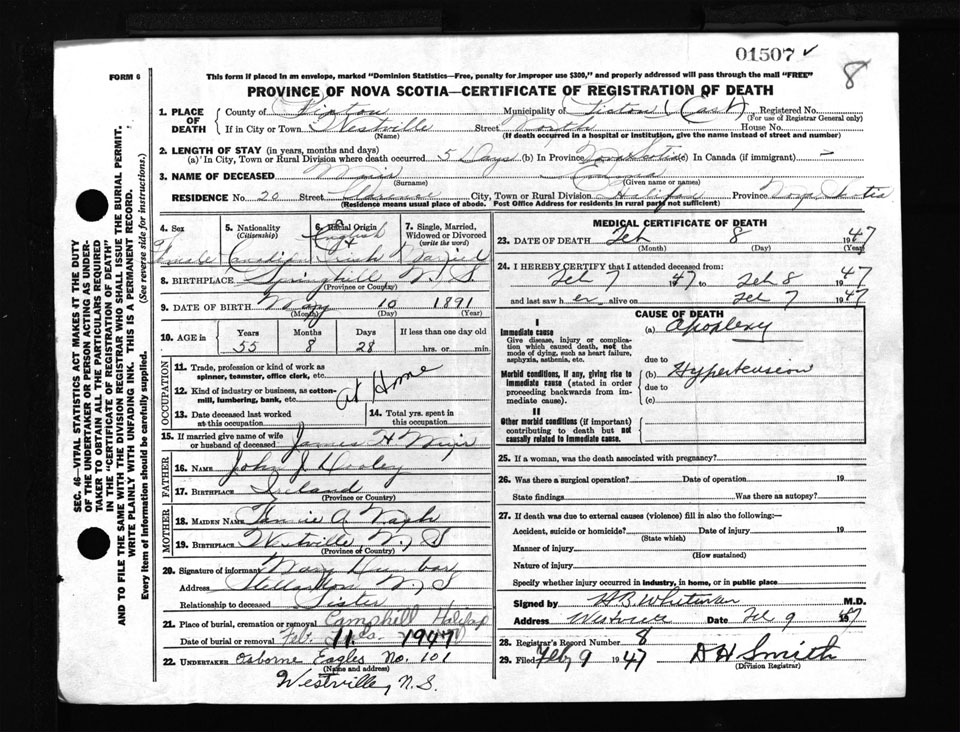 01507 ✓
8
FORM 6
This form if placed in an envelope, marked "Dominion Statistics—Free, penalty for improper use $300," and properly addressed will pass through the mail "FREE"
PROVINCE OF NOVA SCOTIA—CERTIFICATE OF REGISTRATION OF DEATH
1. PLACE OF DEATH
County of Municipality of (East) Registered No.
(For use of Registrar General only)
If in City or Town Westville Street North House No.
(Name) (If death occurred in a hospital or institution, give the name instead of street and number)
2. LENGTH OF STAY (in years, months and days)
(a) In City, Town or Rural Division where death occurred 5 Days (b) In Province Nova Scotia (c) In Canada (if immigrant) -
3. NAME OF DECEASED Muir Emma
(Surname) (Given name or names)
RESIDENCE No. 20 Street City, Town or Rural Division Halifax Province Nova Scotia
(Residence means usual place of abode. Post Office Address for residents in rural parts not sufficient)
4. Sex
Female
5. Nationality (Citizenship)
Canadian
6. Racial Origin
English & Irish
7. Single, Married, Widowed or Divorced (write the word)
Married
8. BIRTHPLACE Springhill N S
(Province or Country)
9. DATE OF BIRTH May 10 1891
(Month) (Day) (Year)
10. AGE in
Years Months Days If less than one day old
55 8 28 hrs. or min.
OCCUPATION
11. Trade, profession or kind of work as spinner, teamster, office clerk, etc.
12. Kind of industry or business, as cotton-mill, lumbering, bank, etc.
At Home
13. Date deceased last worked at this occupation
14. Total yrs. spent in this occupation
15. If married give name of wife or husband of deceased James H Muir
FATHER
16. NAME John J Dooley
17. BIRTHPLACE Ireland
(Province or Country)
MOTHER
18. MAIDEN NAME Fannie A
19. BIRTHPLACE Westville N S
(Province or Country)
20. Signature of informant Mary Dunbar
Address Stellarton N. S
Relationship to deceased Sister
21. Place of burial, cremation or removal Camphill Halifax
Date of burial or removal Feb. 11 1947
22. UNDERTAKER Osborne Eagles No. 101
(Name and address)
Westville, N. S.
MEDICAL CERTIFICATE OF DEATH
23. DATE OF DEATH Feb 8 1947
(Month) (Day) (Year)
24. I HEREBY CERTIFY that I attended deceased from:
Feb 7 1947 to Feb 8 1947
and last saw her alive on Feb 7 1947
CAUSE OF DEATH
I
Immediate cause
Give disease, injury or complication which caused death, not the mode of dying, such as heart failure, asphyxia, asthenia, etc.
(a) Apoplexy
due to
Morbid conditions, if any, giving rise to immediate cause (stated in order proceeding backwards from immediate cause).
(b) Hypertension
due to
(c)
II
Other morbid conditions (if important) contributing to death but not causally related to immediate cause.
25. If a woman, was the death associated with pregnancy?
26. Was there a surgical operation? Date of operation 19
State findings Was there an autopsy?
27. If death was due to external causes (violence) fill in also the following:—
Accident, suicide or homicide? Date of injury 19
(State which)
Manner of injury
(How sustained)
Nature of injury
Specify whether injury occurred in industry, in home, or in public place
Signed by M.D.
Address Westville Date Feb 9 1947
28. Registrar's Record Number 8
29. Filed Feb 9 1947 A H Smith
(Division Registrar)
SEC. 46—VITAL STATISTICS ACT MAKES IT THE DUTY
OF THE UNDERTAKER OR PERSON ACTING AS UNDER-
TAKER TO OBTAIN ALL THE PARTICULARS REQUIRED
IN THE "CERTIFICATE OF REGISTRATION OF DEATH"
AND TO FILE THE SAME WITH THE DIVISION REGISTRAR WHO SHALL ISSUE THE BURIAL PERMIT.
WRITE PLAINLY WITH UNFADING INK. THIS IS A PERMANENT RECORD.
Every item of Information should be carefully supplied. (See reverse side for instructions.)